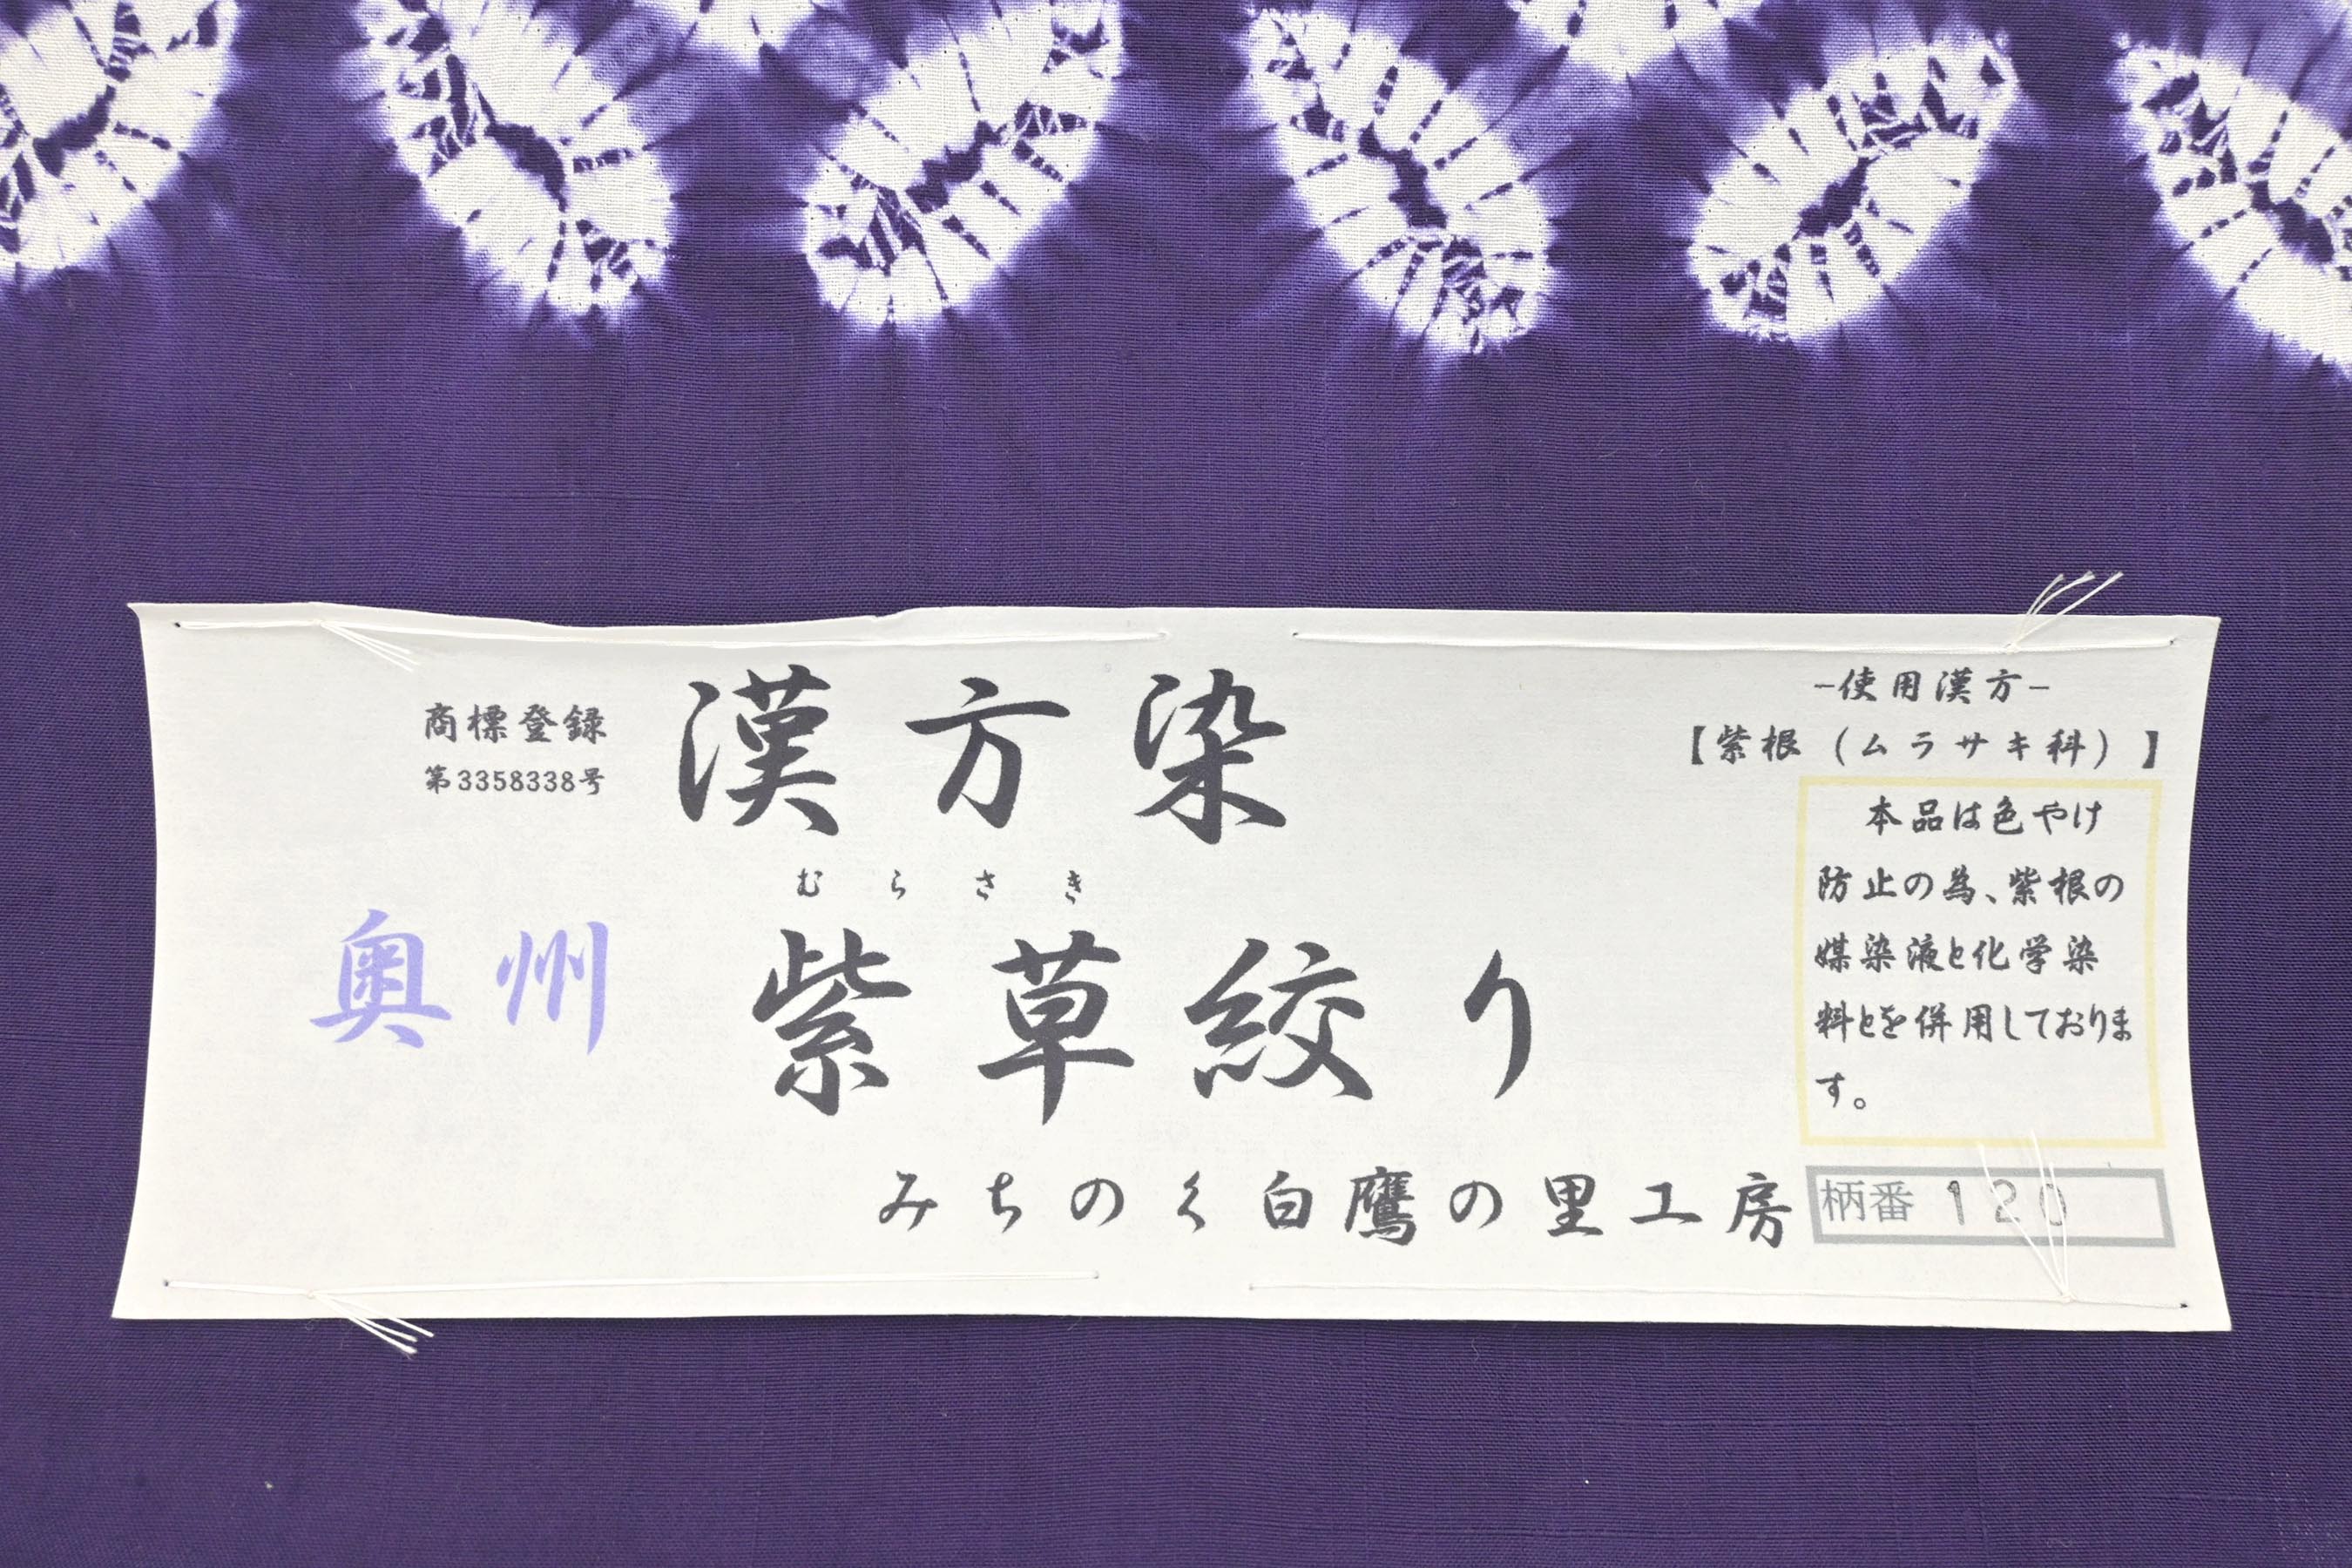 商標登録
第3358338号
漢方染
むらさき
奥州 紫草絞り
みちのく白鷹の里工房
-使用漢方-
【紫根（ムラサキ科）】
本品は色やけ
防止の為、紫根の
媒染液と化学染
料とを併用しておりま
す。
柄番 120